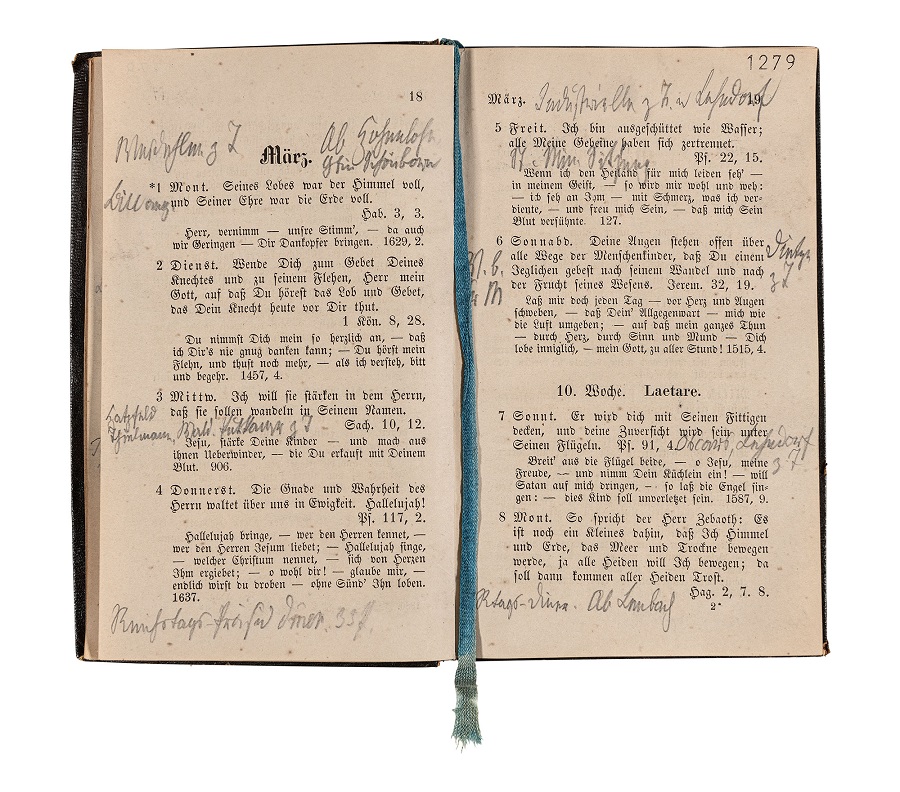 18
März.
Ab Hohenlohe
*1 Mont. Seines Lobes war der Himmel voll,
und Seiner Ehre war die Erde voll.
Hab. 3, 3.
Herr, vernimm — unsre Stimm', — da auch
wir Geringen — Dir Dankopfer bringen. 1629, 2.
2 Dienst. Wende Dich zum Gebet Deines
Knechtes und zu seinem Flehen, Herr mein
Gott, auf daß Du hörest das Lob und Gebet,
das Dein Knecht heute vor Dir thut.
1 Kön. 8, 28.
Du nimmst Dich mein so herzlich an, — daß
ich Dir's nie gnug danken kann; — Du hörst mein
Flehn, und thust noch mehr, — als ich versteh, bitt
und begehr. 1457, 4.
3 Mittw. Ich will sie stärken in dem Herrn,
daß sie sollen wandeln in Seinem Namen.
Sach. 10, 12.
Hatzfeld
Thielmann
Jesu, stärke Deine Kinder — und mach aus
ihnen Ueberwinder, — die Du erkauft mit Deinem
Blut. 906.
4 Donnerst. Die Gnade und Wahrheit des
Herrn waltet über uns in Ewigkeit. Hallelujah!
Ps. 117, 2.
Hallelujah bringe, — wer den Herren kennet, —
wer den Herren Jesum liebet; — Hallelujah singe,
— welcher Christum nennet, — sich von Herzen
Ihm ergiebet; — o wohl dir! — glaube mir, —
endlich wirst du droben — ohne Sünd' Ihn loben.
1637.
Diner. 33
1279
März. 19
Lehndorf
5 Freit. Ich bin ausgeschüttet wie Wasser;
alle Meine Gebeine haben sich zertrennet.
Ps. 22, 15.
St. Min Sitzung
Wenn ich den Heiland für mich leiden seh' —
in meinem Geist, — so wird mir wohl und weh:
— ich seh an Ihm — mit Schmerz, was ich ver-
diente, — und freu mich Sein, — daß mich Sein
Blut versühnte. 127.
6 Sonnabd. Deine Augen stehen offen über
alle Wege der Menschenkinder, daß Du einem
Jeglichen gebest nach seinem Wandel und nach
der Frucht seines Wesens. Jerem. 32, 19.
z T
Laß mir doch jeden Tag — vor Herz und Augen
schweben, — daß Dein' Allgegenwart — mich wie
die Luft umgeben; — auf daß mein ganzes Thun
— durch Herz, durch Sinn und Mund — Dich
lobe inniglich, — mein Gott, zu aller Stund! 1515, 4.
10. Woche. Laetare.
7 Sonnt. Er wird dich mit Seinen Fittigen
decken, und deine Zuversicht wird sein unter
Seinen Flügeln. Ps. 91, 4.
Lehndorf
z T
Breit' aus die Flügel beide, — o Jesu, meine
Freude, — und nimm Dein Küchlein ein! — will
Satan auf mich dringen, — so laß die Engel sin-
gen: — dies Kind soll unverletzet sein. 1587, 9.
8 Mont. So spricht der Herr Zebaoth: Es
ist noch ein Kleines dahin, daß Ich Himmel
und Erde, das Meer und Trockne bewegen
werde, ja alle Heiden will Ich bewegen; da
soll dann kommen aller Heiden Trost.
Hag. 2, 7. 8.
2*
Rtags-Diner. Ab Lenbach